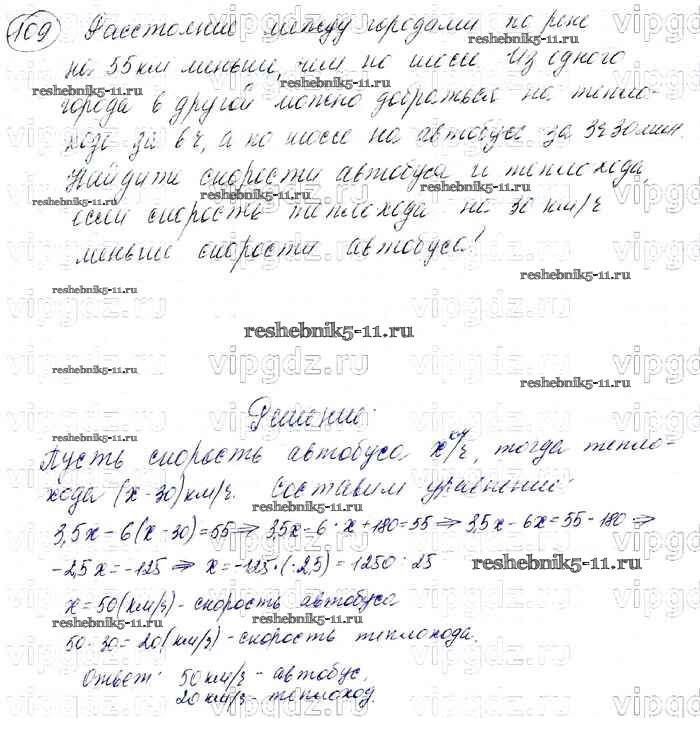 109 Расстояние между городами по реке
на 55 км меньше, чем по шоссе. Из одного
города в другой можно добраться на тепло-
ходе за 6 ч, а по шоссе на автобусе за 3ч 30мин.
Найдите скорости автобуса и теплохода,
если скорость теплохода на 30 км/ч
меньше скорости автобуса?
reshebnik5-11.ru
Решение:
Пусть скорость автобуса x км/ч, тогда тепло-
хода (x-30) км/ч. Составим уравнение:
3,5x - 6(x - 30) = 55 ⇒ 3,5x - 6 · x + 180 = 55 ⇒ 3,5x - 6x = 55 - 180 ⇒
-2,5x = -125 ⇒ x = -125 : (-2,5) = 1250 : 25
x = 50 (км/ч) - скорость автобуса
50 - 30 = 20 (км/ч) - скорость теплохода.
Ответ: 50 км/ч - автобус,
20 км/ч - теплоход.